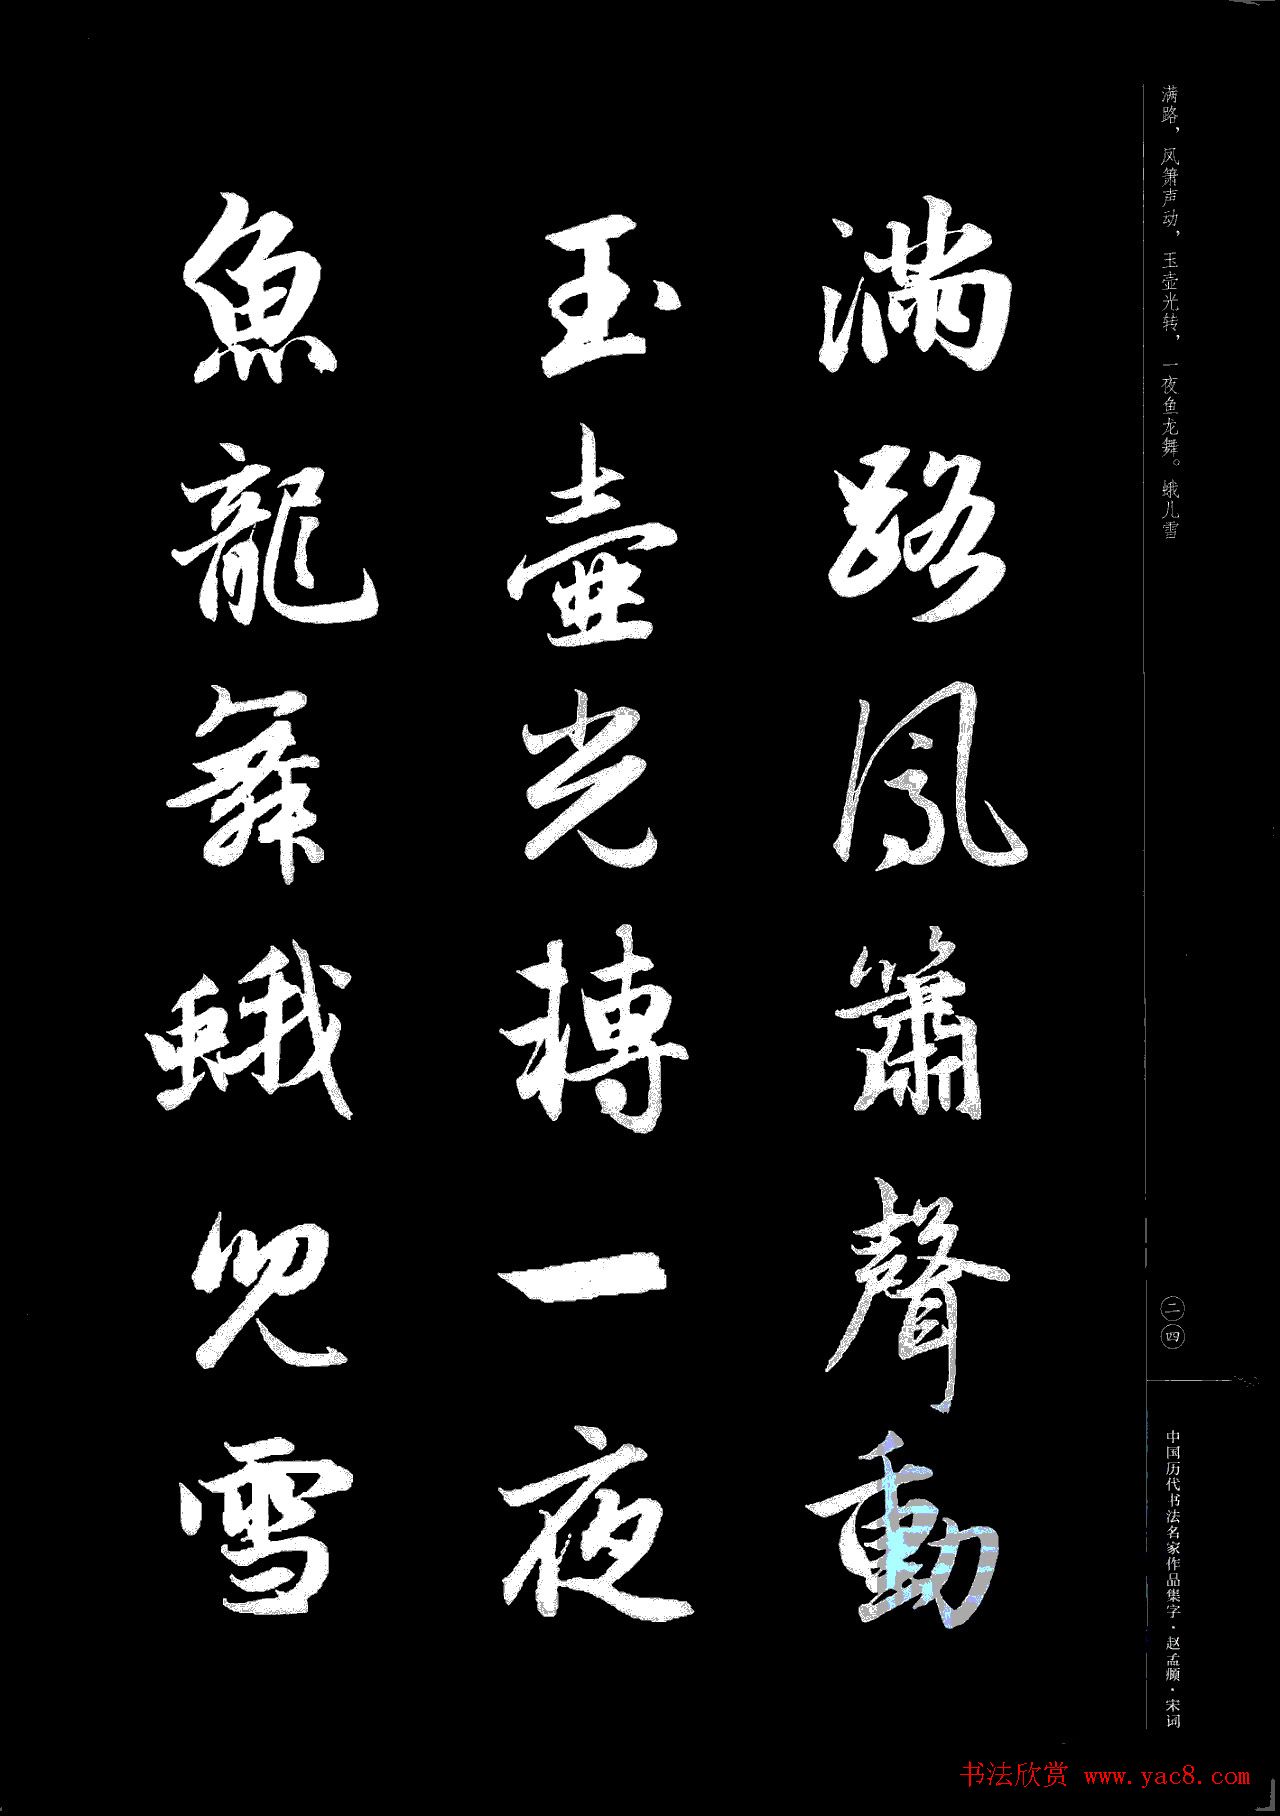 满路，凤箫声动，玉壶光转，一夜鱼龙舞。蛾儿雪
滿路鳳簫聲動
玉壺光轉一夜
魚龍舞蛾兒雪
二四
中国历代书法名家作品集字·赵孟頫·宋词
书法欣赏 www.yac8.com